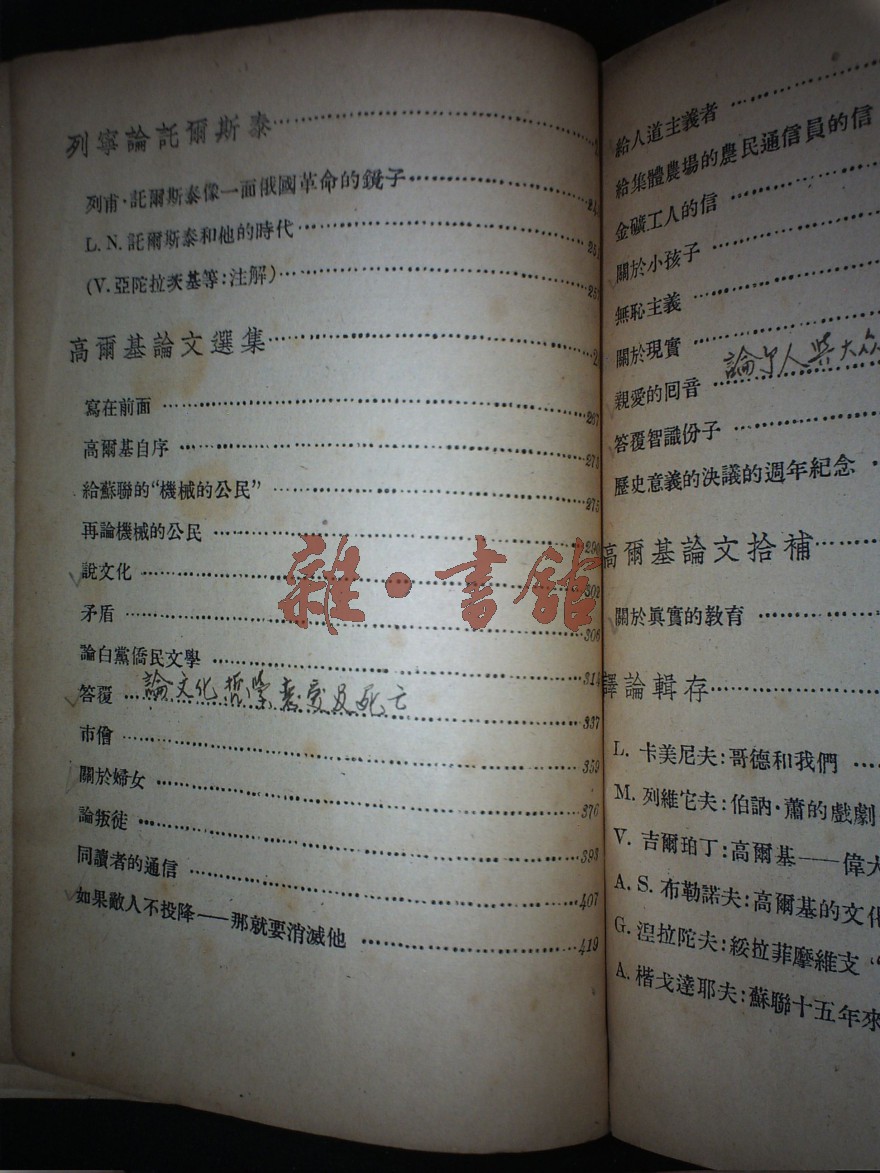 列寧論託爾斯泰
列甫·託爾斯泰像一面俄國革命的鏡子
L. N. 託爾斯泰和他的時代
(V. 亞陀拉茨基等:注解)
高爾基論文選集
寫在前面 267
高爾基自序
給蘇聯的“機械的公民” 275
再論機械的公民 290
說文化 302
矛盾 306
論白黨僑民文學 314
答覆 論文化 哲學 愛及死亡 337
市儈 359
關於婦女 376
論叛徒 393
同讀者的通信 407
如果敵人不投降——那就要消滅他 419
給人道主義者
給集體農場的農民通信員的信
金礦工人的信
關於小孩子
無恥主義
關於現實
親愛的回音 論 人與大众
答覆智識份子
歷史意義的決議的週年紀念
高爾基論文拾補
關於眞實的教育
譯論輯存
L. 卡美尼夫:哥德和我們
M. 列維它夫:伯訥·蕭的戲劇
V. 吉爾珀丁:高爾基——偉大
A. S. 布勒諾夫:高爾基的文化
G. 涅拉陀夫:綏拉菲摩維支
A. 楷戈達耶夫:蘇聯十五年來
雜·書館